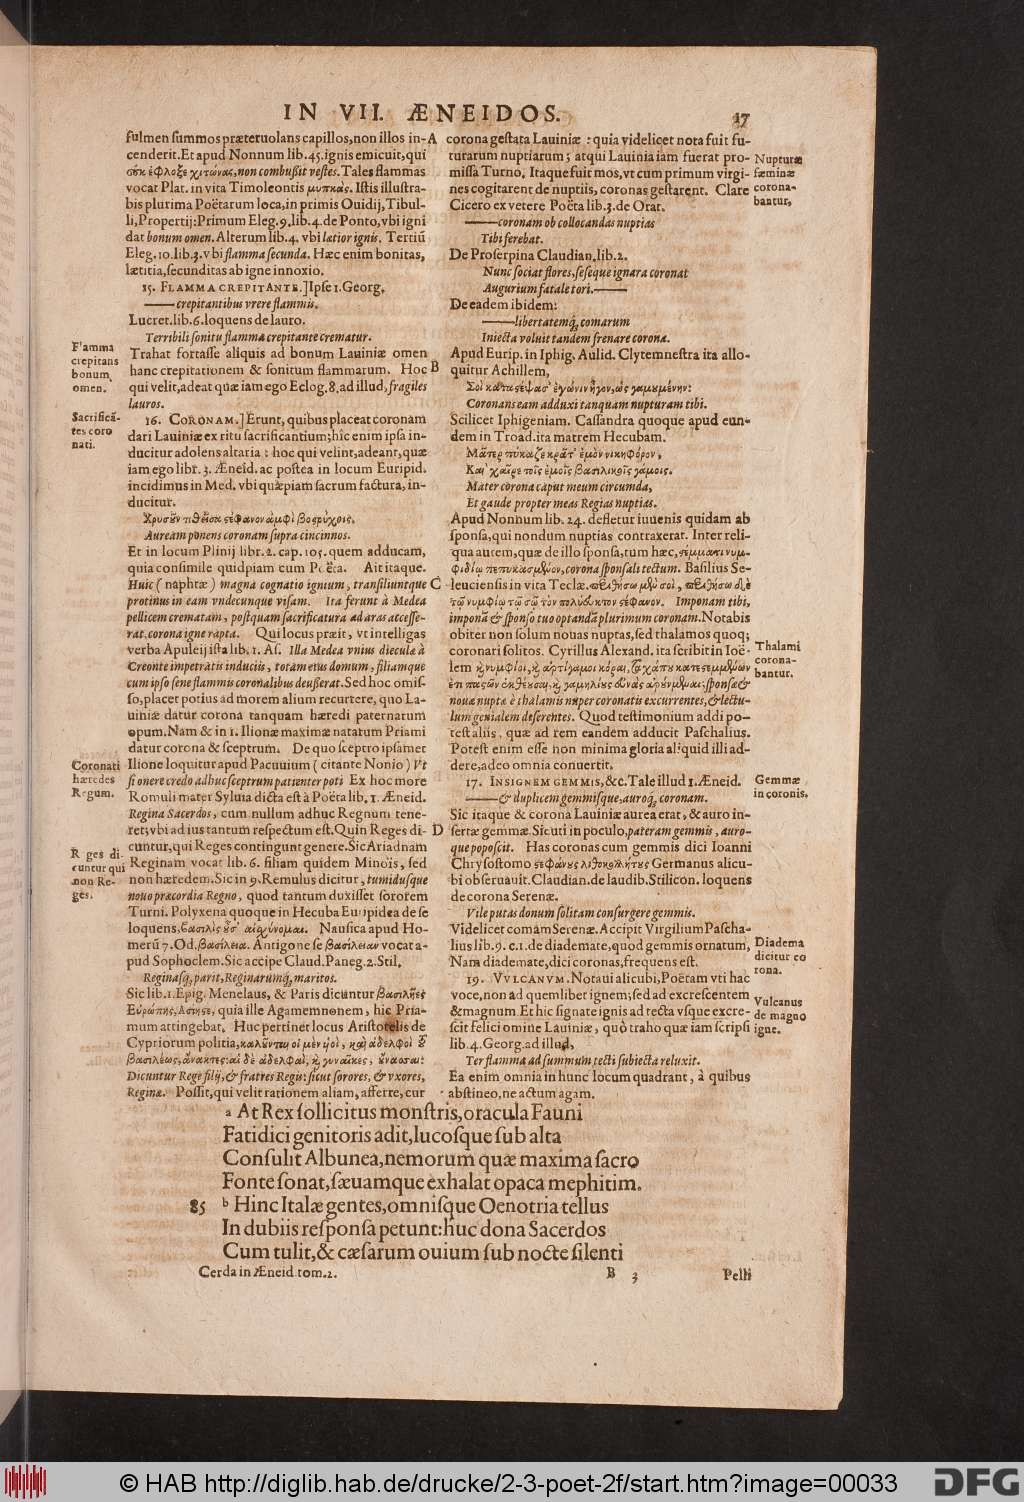 IN VII. ÆNEIDOS. 17
fulmen summos præteruolans capillos, non illos in- A
cenderit. Et apud Nonnum lib. 45. ignis emicuit, qui
οὐκ ἔφλοξε χιτῶνας, non combußit vestes. Tales flammas
vocat Plat. in vita Timoleontis μυστικάς. Istis illustra-
bis plurima Poëtarum loca, in primis Ouidij, Tibul-
li, Propertij: Primum Eleg. 9. lib. 4. de Ponto, vbi igni
dat bonum omen. Alterum lib. 4. vbi lætior ignis. Tertiũ
Eleg. 10. lib. 3. vbi flamma secunda. Hæc enim bonitas,
lætitia, secunditas ab igne innoxio.
15. FLAMMA CREPITANTE.] Ipse 1. Georg.
—— crepitantibus vrere flammis.
Lucret. lib. 6. loquens de lauro.
Terribili sonitu flamma crepitante crematur.
Flamma
crepitans
bonum
omen.
Trahat fortasse aliquis ad bonum Lauiniæ omen
hanc crepitationem & sonitum flammarum. Hoc B
qui velit, adeat quæ iam ego Eclog. 8. ad illud, fragiles
lauros.
Sacrificã-
tes coro
nati.
16. CORONAM.] Erunt, quibus placeat coronam
dari Lauiniæ ex ritu sacrificantium; hic enim ipsa in-
ducitur adolens altaria: hoc qui velint, adeant, quæ
iam ego libr. 3. Æneid. ac postea in locum Euripid.
incidimus in Med. vbi quæpiam sacrum factura, in-
ducitur.
Χρυσοῦν τιθεῖσα στέφανον ἀμφὶ βοστρύχοις.
Auream ponens coronam supra cincinnos.
Et in locum Plinij libr. 2. cap. 105. quem adducam,
quia consimile quidpiam cum Poëta. Ait itaque.
Huic (naphtæ) magna cognatio ignium, transiliuntque C
protinus in eam vndecunque visam. Ita ferunt à Medea
pellicem crematam, postquam sacrificatura ad aras accesse-
rat, corona igne rapta. Qui locus præit, vt intelligas
verba Apuleij ista lib. 1. As. Illa Medea vnius dieculæ à
Creonte impetratis induciis, totam eius domum, filiamque
cum ipso sene flammis coronalibus deußerat. Sed hoc omis-
so, placet potius ad morem alium recurrere, quo La-
uiniæ datur corona tanquam hæredi paternarum
opum. Nam & in 1. Ilionæ maximæ natarum Priami
datur corona & sceptrum. De quo sceptro ipsamet
Coronati
hæredes
Regum.
Ilione loquitur apud Pacuuium (citante Nonio) Vt
si onere credo adhuc sceptrum patienter poti Ex hoc more
Romuli mater Syluia dicta est à Poëta lib. 1. Æneid.
Regina Sacerdos, cum nullum adhuc Regnum tene-
ret; vbi ad ius tantum respectum est. Quin Reges di- D
Reges di-
cuntur qui
non Re-
ges.
cuntur, qui Reges contingunt genere. Sic Ariadnam
Reginam vocat lib. 6. filiam quidem Minois, sed
non hæredem. Sic in 9. Remulus dicitur, tumidusque
nouo præcordia Regno, quod tantum duxisset sororem
Turni. Polyxena quoque in Hecuba Euripidea de se
loquens, βασιλὶς οὖσ' αἰσχύνομαι. Nausica apud Ho-
merũ 7. Od. βασίλεια. Antigone se βασίλειαν vocat a-
pud Sophoclem. Sic accipe Claud. Paneg. 2. Stil.
Reginasq́, parit, Reginarumq́, maritos.
Sic lib. 1. Epig. Menelaus, & Paris dicuntur βασιλῆες
Εὐρώπης, Ασίης τε, quia ille Agamemnonem, hic Pria-
mum attingebat. Huc pertinet locus Aristotelis de
Cypriorum politia, καλοῦνται οἱ μὲν υἱοὶ, καὶ ἀδελφοὶ τοῦ
βασιλέως, ἄνακτες: αἱ δὲ ἀδελφαὶ, καὶ γυναῖκες, ἄνασσαι:
Dicuntur Rege filij, & fratres Regis: sicut sorores, & vxores,
Reginæ. Possit, qui velit rationem aliam, afferre, cur
corona gestata Lauiniæ: quia videlicet nota fuit fu-
turarum nuptiarum; atqui Lauinia iam fuerat pro-
missa Turno. Itaque fuit mos, vt cum primum virgi-
nes cogitarent de nuptiis, coronas gestarent. Clare
Cicero ex vetere Poëta lib. 3. de Orat.
Nupturæ
fæminæ
corona-
bantur.
—— coronam ob collocandas nuptias
Tibi ferebat.
De Proserpina Claudian. lib. 2.
Nunc sociat flores, seseque ignara coronat
Augurium fatale tori. ——
De eadem ibidem:
—— libertatemq́, comarum
Iniecta voluit tandem frenare corona.
Apud Eurip. in Iphig. Aulid. Clytemnestra ita allo-
quitur Achillem,
Σοὶ καταστέψασ' ἐγώ νιν ἦγον, ὡς γαμουμένην:
Coronans eam adduxi tanquam nupturam tibi.
Scilicet Iphigeniam. Cassandra quoque apud eun-
dem in Troad. ita matrem Hecubam.
Μᾶτερ πύκαζε κρᾶτ' ἐμὸν νικηφόρον,
Καὶ χαῖρε τοῖς ἐμοῖς βασιλικοῖς γάμοις.
Mater corona caput meum circumda,
Et gaude propter meas Regias nuptias.
Apud Nonnum lib. 24. defletur iuuenis quidam ab
sponsa, qui nondum nuptias contraxerat. Inter reli-
qua autem, quæ de illo sponsa, tum hæc, στέμματι νυμ-
φιδίῳ πεπυκασμένον, corona sponsali tectum. Basilius Se-
leuciensis in vita Teclæ.
τῷ νυμφίῳ τῷ σῷ τὸν πολύευκτον στέφανον. Imponam tibi,
imponã & sponso tuo optandã plurimum coronam. Notabis
obiter non solum nouas nuptas, sed thalamos quoq;
coronari solitos. Cyrillus Alexand. ita scribit in Ioë-
lem
Thalami
corona-
bantur.
sponsæ &
nouæ nuptæ è thalamis nuper coronatis excurrentes, & lectu-
lum genialem deserentes. Quod testimonium addi po-
test aliis, quæ ad rem eandem adducit Paschalius.
Potest enim esse non minima gloria aliquid illi ad-
dere, adeo omnia conuertit.
17. INSIGNEM GEMMIS, &c. Tale illud 1. Æneid.
—— & duplicem gemmisque, auroq́, coronam.
Gemmæ
in coronis.
Sic itaque & corona Lauiniæ aurea erat, & auro in-
sertæ gemmæ. Sicuti in poculo, pateram gemmis, auro-
que poposcit. Has coronas cum gemmis dici Ioanni
Chrysostomo στεφάνους λιθοκολλήτους Germanus alicu-
bi obseruauit. Claudian. de laudib. Stilicon. loquens
de corona Serenæ.
Vile putas donum solitam consurgere gemmis.
Videlicet comam Serenæ. Accipit Virgilium Pascha-
lius lib. 9. c. 1. de diademate, quod gemmis ornatum,
Nam diademate, dici coronas, frequens est.
Diadema
dicitur co
rona.
19. VVLCANVM. Notaui alicubi, Poëtam vti hac
voce, non ad quemlibet ignem; sed ad excrescentem
& magnum Et hic signate ignis ad tecta vsque excre-
scit felici omine Lauiniæ, quò traho quæ iam scripsi
lib. 4. Georg. ad illud,
Vulcanus
de magno
igne.
Ter flamma ad summum tecti subiecta reluxit.
Ea enim omnia in hunc locum quadrant, à quibus
abstineo, ne actum agam.
a At Rex sollicitus monstris, oracula Fauni
Fatidici genitoris adit, lucosque sub alta
Consulit Albunea, nemorum quæ maxima sacro
Fonte sonat, sæuamque exhalat opaca mephitim.
85 b Hinc Italæ gentes, omnisque Oenotria tellus
In dubiis responsa petunt: huc dona Sacerdos
Cum tulit, & cæsarum ouium sub nocte silenti
Cerda in Æneid. tom. 2. B 3 Pelli
© HAB http://diglib.hab.de/drucke/2-3-poet-2f/start.htm?image=00033
DFG